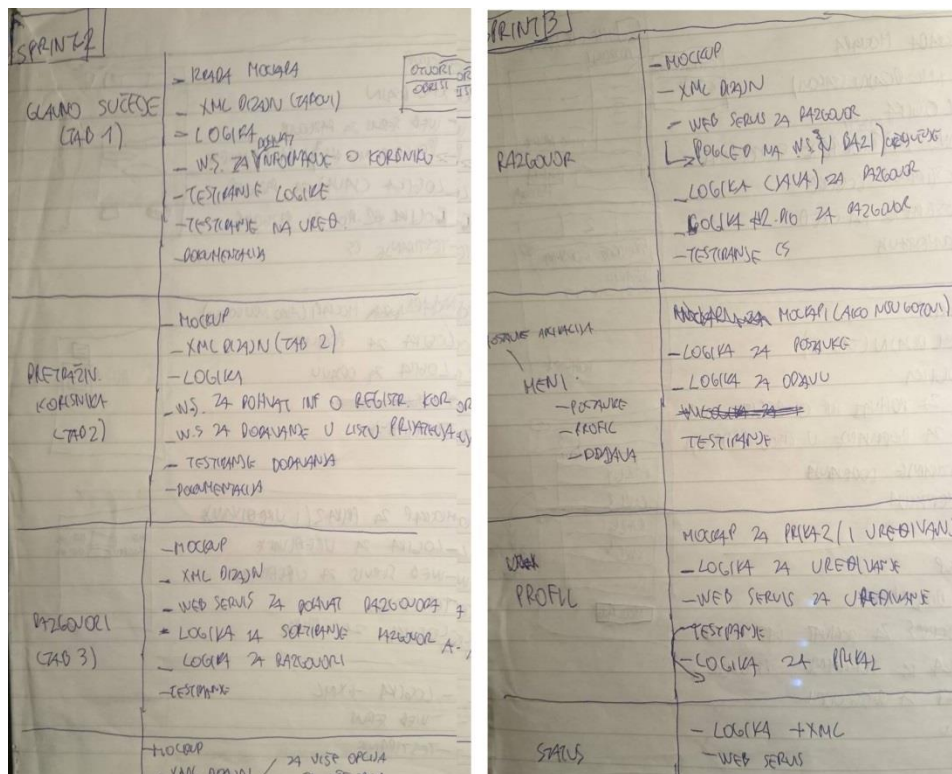 SPRINT 2
GLAVNO SUČELJE
(TAB 1)
- IZRADA MOCKAPA
- XML DIZAJN (TABOVI)
- LOGIKA
- W.S. ZA DOHVAT INFORMACIJE O KORISNIKU
- TESTIRANJE LOGIKE
- TESTIRANJE NA UREĐ.
- DOKUMENTACIJA
OTVORI
PRETRAŽIV.
KORISNIKA
(TAB 2)
- MOCKUP
- XML DIZAJN (TAB 2)
- LOGIKA
- W.S. ZA DOHVAT INF O REGISTR. KOR
- W.S ZA DODAVANJE U LISTU PRIJATELJA
- TESTIRANJE DODAVANJA
- DOKUMENTACIJA
RAZGOVORI
(TAB 3)
- MOCKUP
- XML DIZAJN
- WEB SERVIS ZA DOHVAT RAZGOVORA
- LOGIKA ZA SORTIRANJE RAZGOVOR A-
- LOGIKA ZA RAZGOVORI
- TESTIRANJE
- MOCKUP
XML DIZAJN / ZA VIŠE OPCIJA
SPRINT 3
RAZGOVOR
- MOCKUP
- XML DIZAJN
- WEB SERVIS ZA RAZGOVOR
POGLED NA W.S. BAZI
- LOGIKA (JAVA) ZA RAZGOVOR
- LOGIKA ZA RAZGOVOR
- TESTIRANJE CS
APLIKACIJA
MENI
- POSTAVKE
- PROFIL
- ODJAVA
MOCKAPI (AKO NISU GOTOVI)
- LOGIKA ZA POSTAVKE
- LOGIKA ZA ODJAVU
TESTIRANJE
PROFIL
MOCKAP ZA PRIKAZ / I UREĐIVANJ
- LOGIKA ZA UREĐIVANJE
- WEB SERVIS ZA UREĐIVANJE
- TESTIRANJE
- LOGIKA ZA PRIKAZ
STATUS
- LOGIKA + XML
- WEB SERVIS